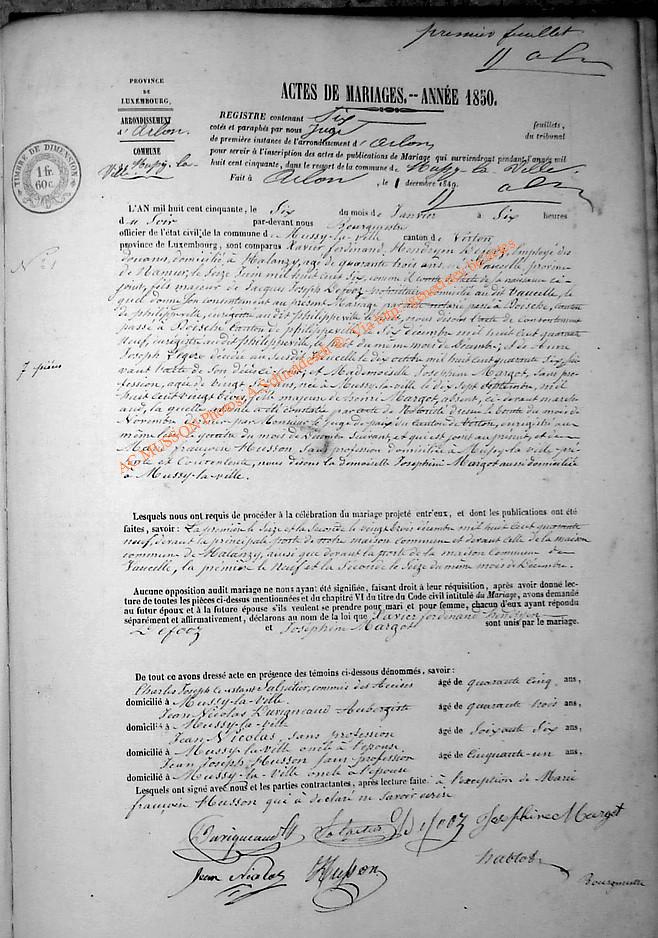 premier feuillet
PROVINCE
DE
LUXEMBOURG,
ARRONDISSEMENT
d'Arlon.
COMMUNE
de Mussy-la-
Ville
TIMBRE DE DIMENSION
1 fr.
60 c.
ACTES DE MARIAGES.--ANNÉE 1850.
REGISTRE contenant Six feuillets,
cotés et paraphés par nous Juge du tribunal
de première instance de l'arrondissement d'Arlon
pour servir à l'inscription des actes de publications de Mariage qui surviendront pendant l'année mil
huit cent cinquante, dans le ressort de la commune de Mussy-la-Ville.
Fait à Arlon, le 1 décembre 1849.
N° 1
L'AN mil huit cent cinquante, le Six du mois de Janvier à Six heures
du Soir par-devant nous Bourgmestre
officier de l'état civil de la commune de Mussy-la-ville canton de Virton
province de Luxembourg, sont comparus Xavier ferdinand Employé des
douanes, domicilié à Halanzy, agé de quarante trois ans, né à Vaucelle province
de Namur, le Seize Juin mil huit cent Six, comme de la naissance ci-
joint, fils majeur de Jacques Joseph domicilié au dit Vaucelle, le
quel donne Son consentement au présent Mariage par acte notarié passé à Doische, Canton
de philippeville, enregistré audit philippeville nous disons l'acte de Consentement
passé à Doische Canton de philippeville le Six Décembre mil huit cent quarante
neuf, enregistré audit philippeville, le Sept du même mois de Décembre; et de
Joseph décédée au Susdit Vaucelle le dix octobre mil huit cent quarante Six, Sui-
7 pièces
vant l'acte de Son décès ci-joint; et Mademoiselle Josephine Margot, Sans pro-
fession, agée de Vingt Six ans, née à Mussy-la-ville le dix Sept Septembre, mil
huit cent vingt trois, fille majeure de henri Margot, absent, ci-devant march-
and, la quelle est constatée par acte de Notoriété dressé le trente du mois de
Novembre dernier par Monsieur le Juge de paix du Canton de Virton, enregistré au
même lieu le quatre du mois de Décembre Suivant et qui est joint au présent, et de
Marie françoise Husson, Sans profession domiciliée à Mussy-la-ville pré-
sente et Consentante, nous disons la demoiselle Josephine Margot aussi domiciliée
à Mussy-la-ville.
Lesquels nous ont requis de procéder à la célébration du mariage projeté entr'eux, et dont les publications ont été
faites, savoir: La première le Seize et la Seconde le vingt trois décembre mil huit cent quarante
neuf, devant la principale porte de notre maison commune et devant celle de la maison
commune de Halanzy, ainsi que devant la porte de la maison Commune de
Vaucelle, la première le Neuf et la Seconde le Seize du même mois de Décembre.
Aucune opposition audit mariage ne nous ayant été signifiée, faisant droit à leur réquisition, après avoir donné lec-
ture de toutes les pièces ci-dessus mentionnées et du chapitre VI du titre du Code civil intitulé du Mariage, avons demandé
au futur époux et à la future épouse s'ils veulent se prendre pour mari et pour femme, chacun d'eux ayant répondu
séparément et affirmativement, déclarons au nom de la loi que Xavier ferdinand
et Josephine Margot sont unis par le mariage.
De tout ce avons dressé acte en présence des témoins ci-dessous dénommés, savoir:
Charles Joseph Constant commis des accises âgé de quarante Cinq ans,
domicilié à Mussy-la-Ville.
Jean Nicolas Duvigneaud Aubergiste âgé de quarante trois ans,
domicilié à Mussy-la-ville
Jean Nicolas, Sans profession âgé de Soixante Six ans,
domicilié à Mussy-la-ville oncle à l'épouse.
Jean Joseph Husson Sans profession âgé de Cinquante-un ans,
domicilié à Mussy-la-Ville oncle à l'épouse
Lesquels ont signé avec nous et les parties contractantes, après lecture faite: à l'exception de Marie
françoise Husson qui à déclaré ne Savoir écrire
Duvigneaud Josephine Margot
Jean Nicolas Husson Bourgmestre
AC MUSSON Photos: A. Schneider